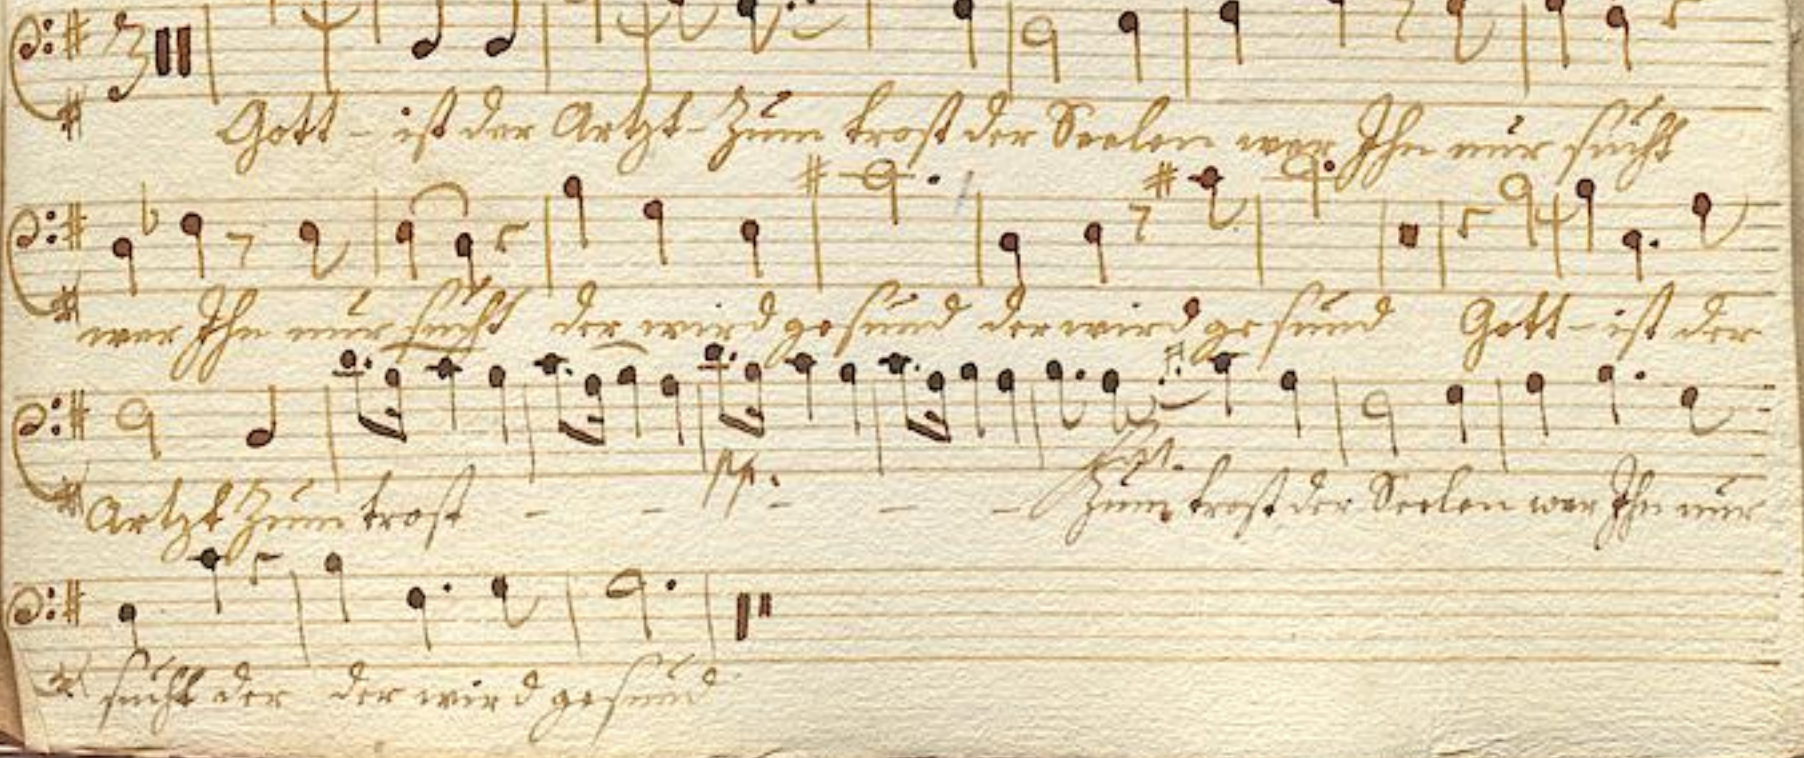 Gott - ist der Artzt - Zum trost der Seelen wer Ihn nur sucht
wer Ihn nur sucht der wird gesund der wird gesund Gott - ist der
Artzt Zum trost - - pp. - - - Zum trost der Seelen wer Ihn nur
sucht der der wird gesund